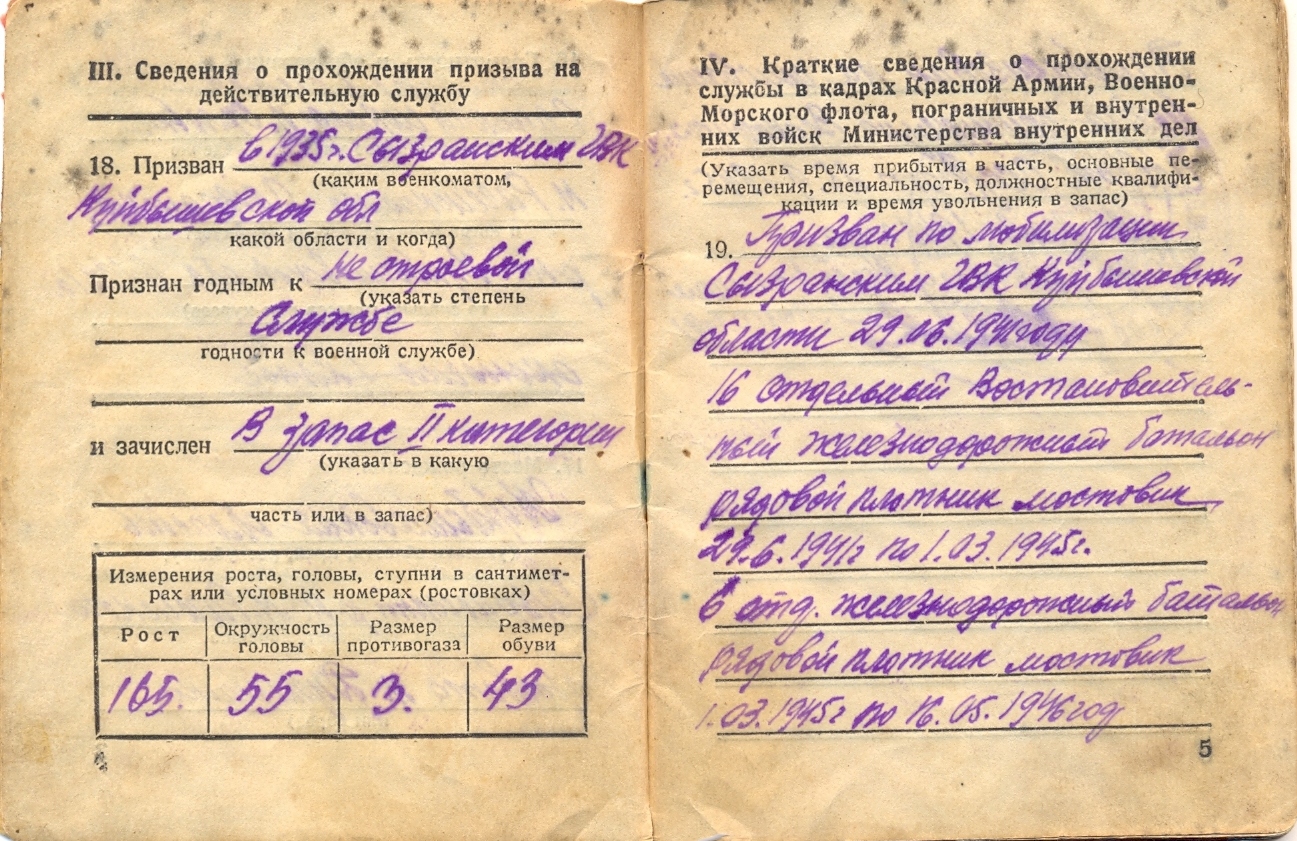 III. Сведения о прохождении призыва на
действительную службу
18. Призван в 1935г. Сызранским ГВК
(каким военкоматом,
Куйбышевской обл
какой области и когда)
Признан годным к не строевой
(указать степень
Службе
годности к военной службе)
и зачислен В запас II категории
(указать в какую
часть или в запас)
Измерения роста, головы, ступни в сантимет-
рах или условных номерах (ростовках)
Рост Окружность головы Размер противогаза Размер обуви
165. 55 3. 43
4
IV. Краткие сведения о прохождении
службы в кадрах Красной Армии, Военно-
Морского флота, пограничных и внутрен-
них войск Министерства внутренних дел
(Указать время прибытия в часть, основные пе-
ремещения, специальность, должностные квалифи-
кации и время увольнения в запас)
19. Призван по мобилизации
Сызранским ГВК Куйбышевской
области 29.06.1941году
16 отдельный Востановитель-
ный железнодорожный батальон
рядовой плотник мостовик
29.6.1941г по 1.03.1945г.
6 отд. железнодорожный батальон
рядовой плотник мостовик
1.03.1945г по 16.05.1946год
5